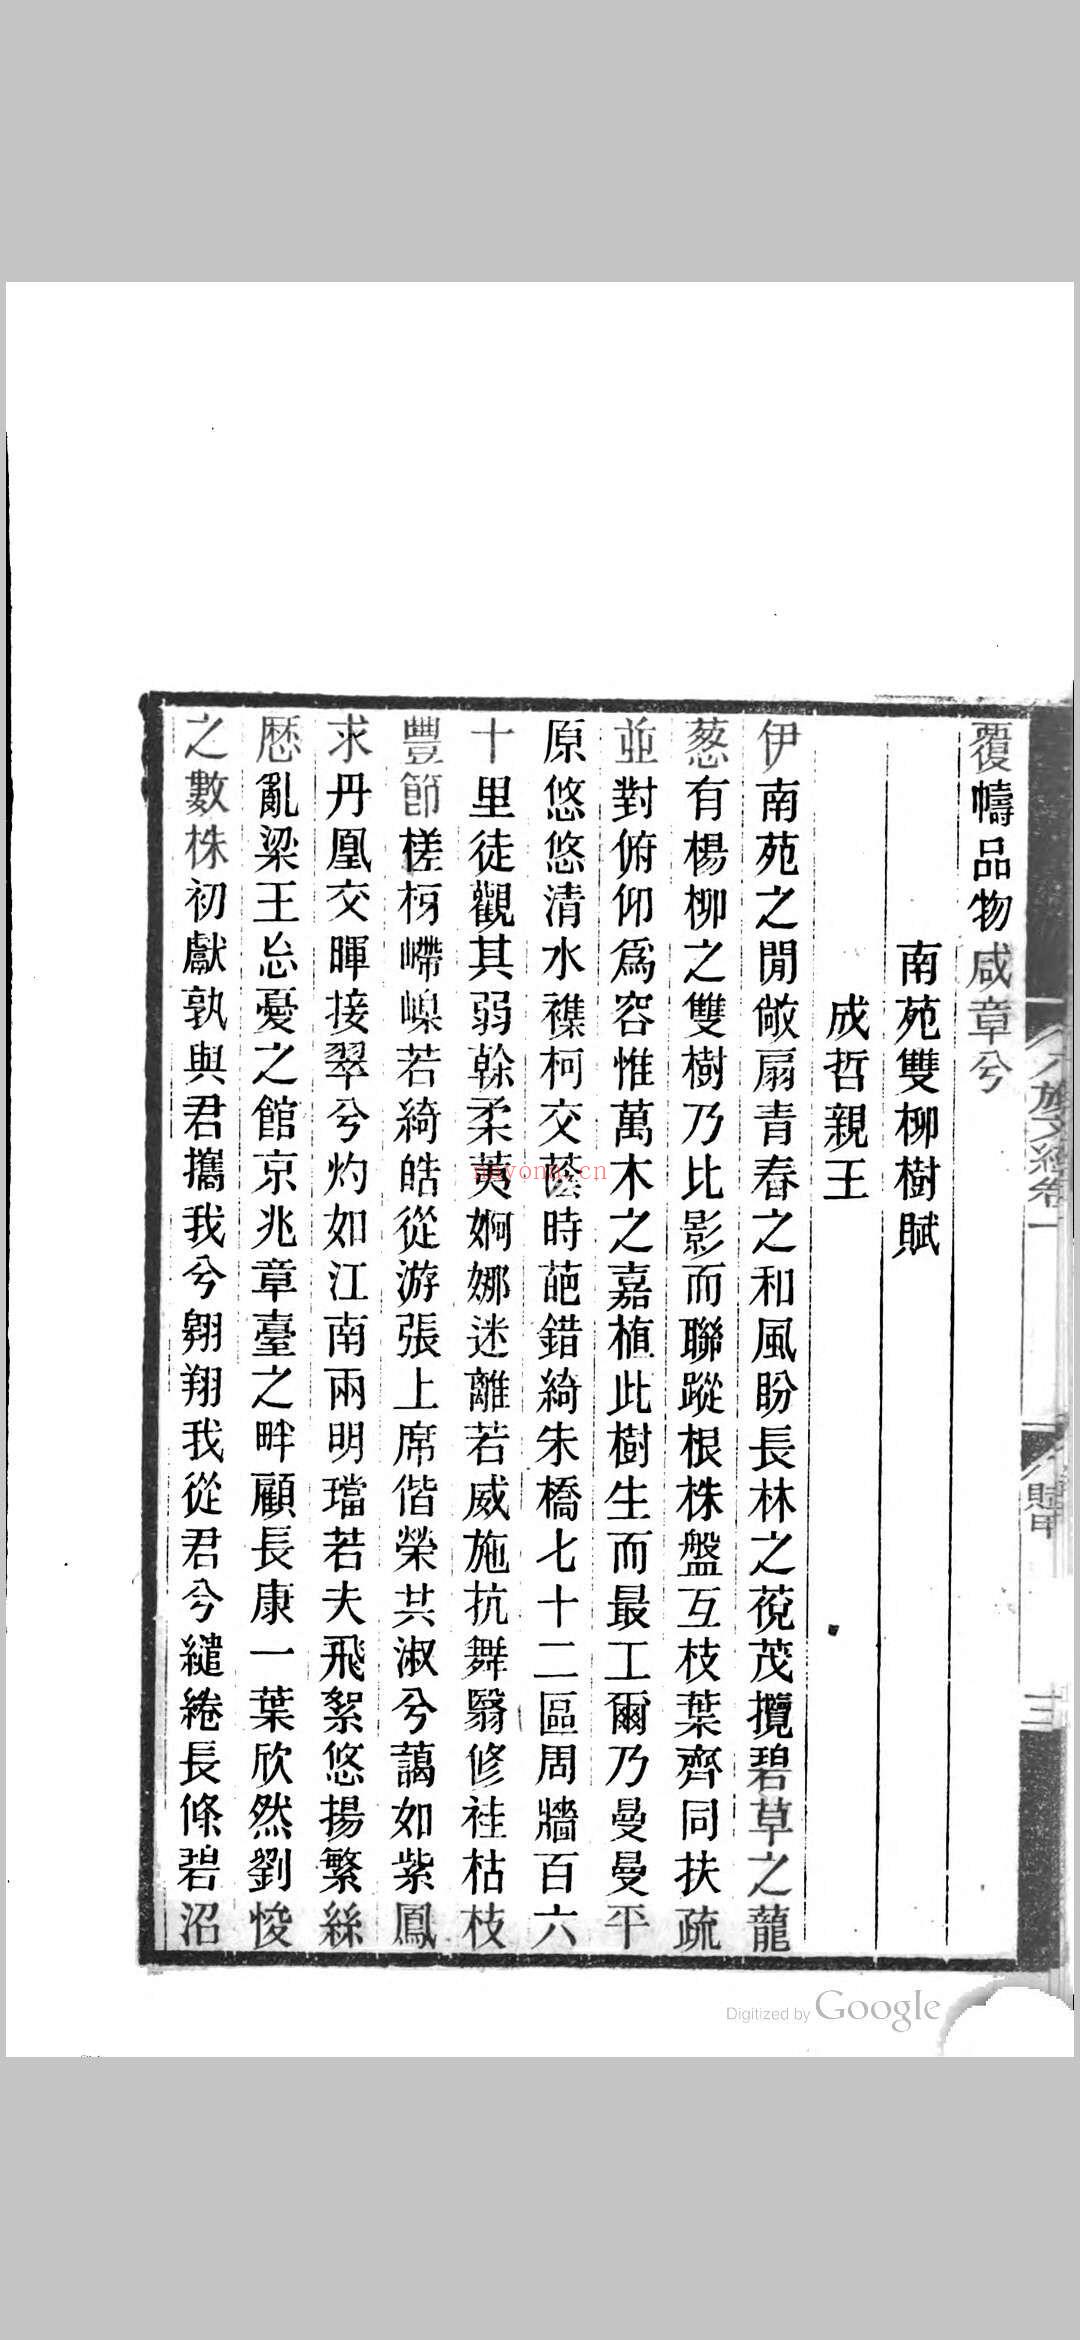 覆幬品物咸章兮
南苑雙柳樹賦
成哲親王
伊南苑之閒敞扇青春之和風盼長林之葂茂攬碧草之蘢
葱有楊柳之雙樹乃比影而聯蹤根株盤互枝葉齊同扶疏
並對俯仰爲容惟萬木之嘉植此樹生而最工爾乃曼曼平
原悠悠清水襍柯交蔭時葩錯綺朱橋七十二區周牆百六
十里徒觀其弱榦柔荑婀娜迷離若威施抗舞翳修袿枯枝
豐節槎枒嵽嵲若綺皓從游張上席偕榮共淑兮藹如紫鳳
求丹凰交暉接翠兮灼如江南兩明璫若夫飛絮悠揚繁絲
歷亂梁王忘憂之館京兆章臺之畔顧長康一葉欣然劉悛
之數株初獻孰與君攜我兮翱翔我從君兮繾綣長條碧沼
八旗文經卷一
賦甲
三
nayona.cn
Digitized by Google